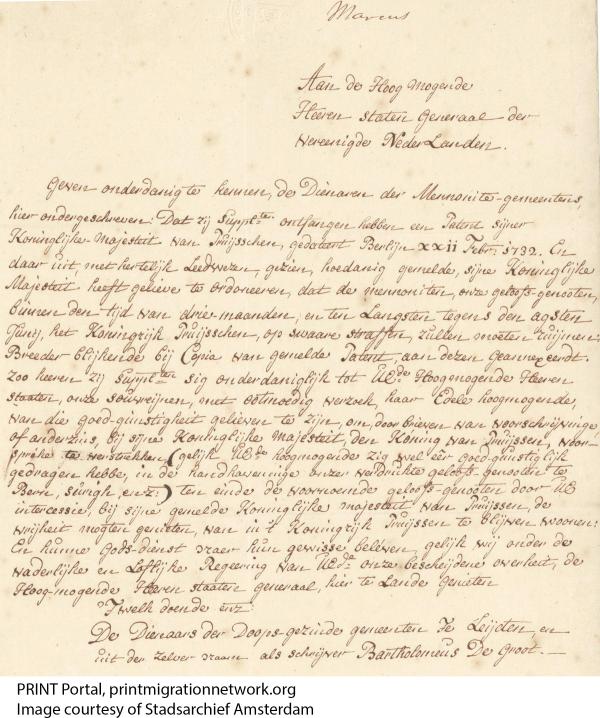 Marcus
Aan de Hoog Mogende
Heeren staten Generaal der
Vereenigde Nederlanden.
Geven onderdanig te kennen, de Dienaren der Mennonite-gemeentens,
hier ondergeschreven: Dat zij Supplten ontfangen hebben een Patent sijner
Koninglijke Majesteit van Pruijsschen, gedateert Berlijn xxii Febr: 1732. En
daar uit, met hertelijk Leedwezen, gezien, hoedanig gemelde, sijne Koninglijke
Majesteit heeft gelieve te ordoneeren, dat de mennoniten, onze geloofs-genooten,
binnen den tijd van drie maanden, en ten Langsten tegens den agsten
Junij, het Koningrijk Pruijsschen, op swaare straffen, zullen moeten ruijmen:
Breeder blijkende bij Copia van gemelde Patent, aan dezen geannexeerdt.
Zoo keeren zij Supplten sig onderdaniglijk tot UEde Hoogmogende Heeren
staaten, onze souvreijnen, met ootmoedig verzoek, haar Edele hoogmogende,
van die goed-gunstigheit gelieven te zijn, om, door brieven van voorschrijvinge,
of anderzins, bij sijne Koninglijke Majesteit, den Koning van Pruijssen, voor-
sprake te verstrekken (gelijk UEde hoogmogende zig wel eer goed-gunstiglijk
gedragen hebbe, in de handhaveninge onzer verdrukte geloofs-genooten te
Bern, surigh, enz:) ten einde de voornoemde geloofs-genooten door UE
intercessie, bij sijne gemelde Koninglijke majesteit van Pruijssen, de
vrijheit mogten genieten, van in 't Koningrijk Pruijssen te blijven woonen:
En hunne Gods-dienst naer hun gewisse beleven, gelijk wij onder de
vaderlijke en Loflijke Regering van UEde onze bescheijdene overheit, de
Hoog-mogende Heeren staaten generaal, hier te Lande genieten
't welk doende enz:
De Dienaars der Doops-gezinde gemeenten te Leijden, en
uit der zelver naam als schrijver Bartholomeus De Groot.
PRINT Portal, printmigrationnetwork.org
Image courtesy of Stadsarchief Amsterdam